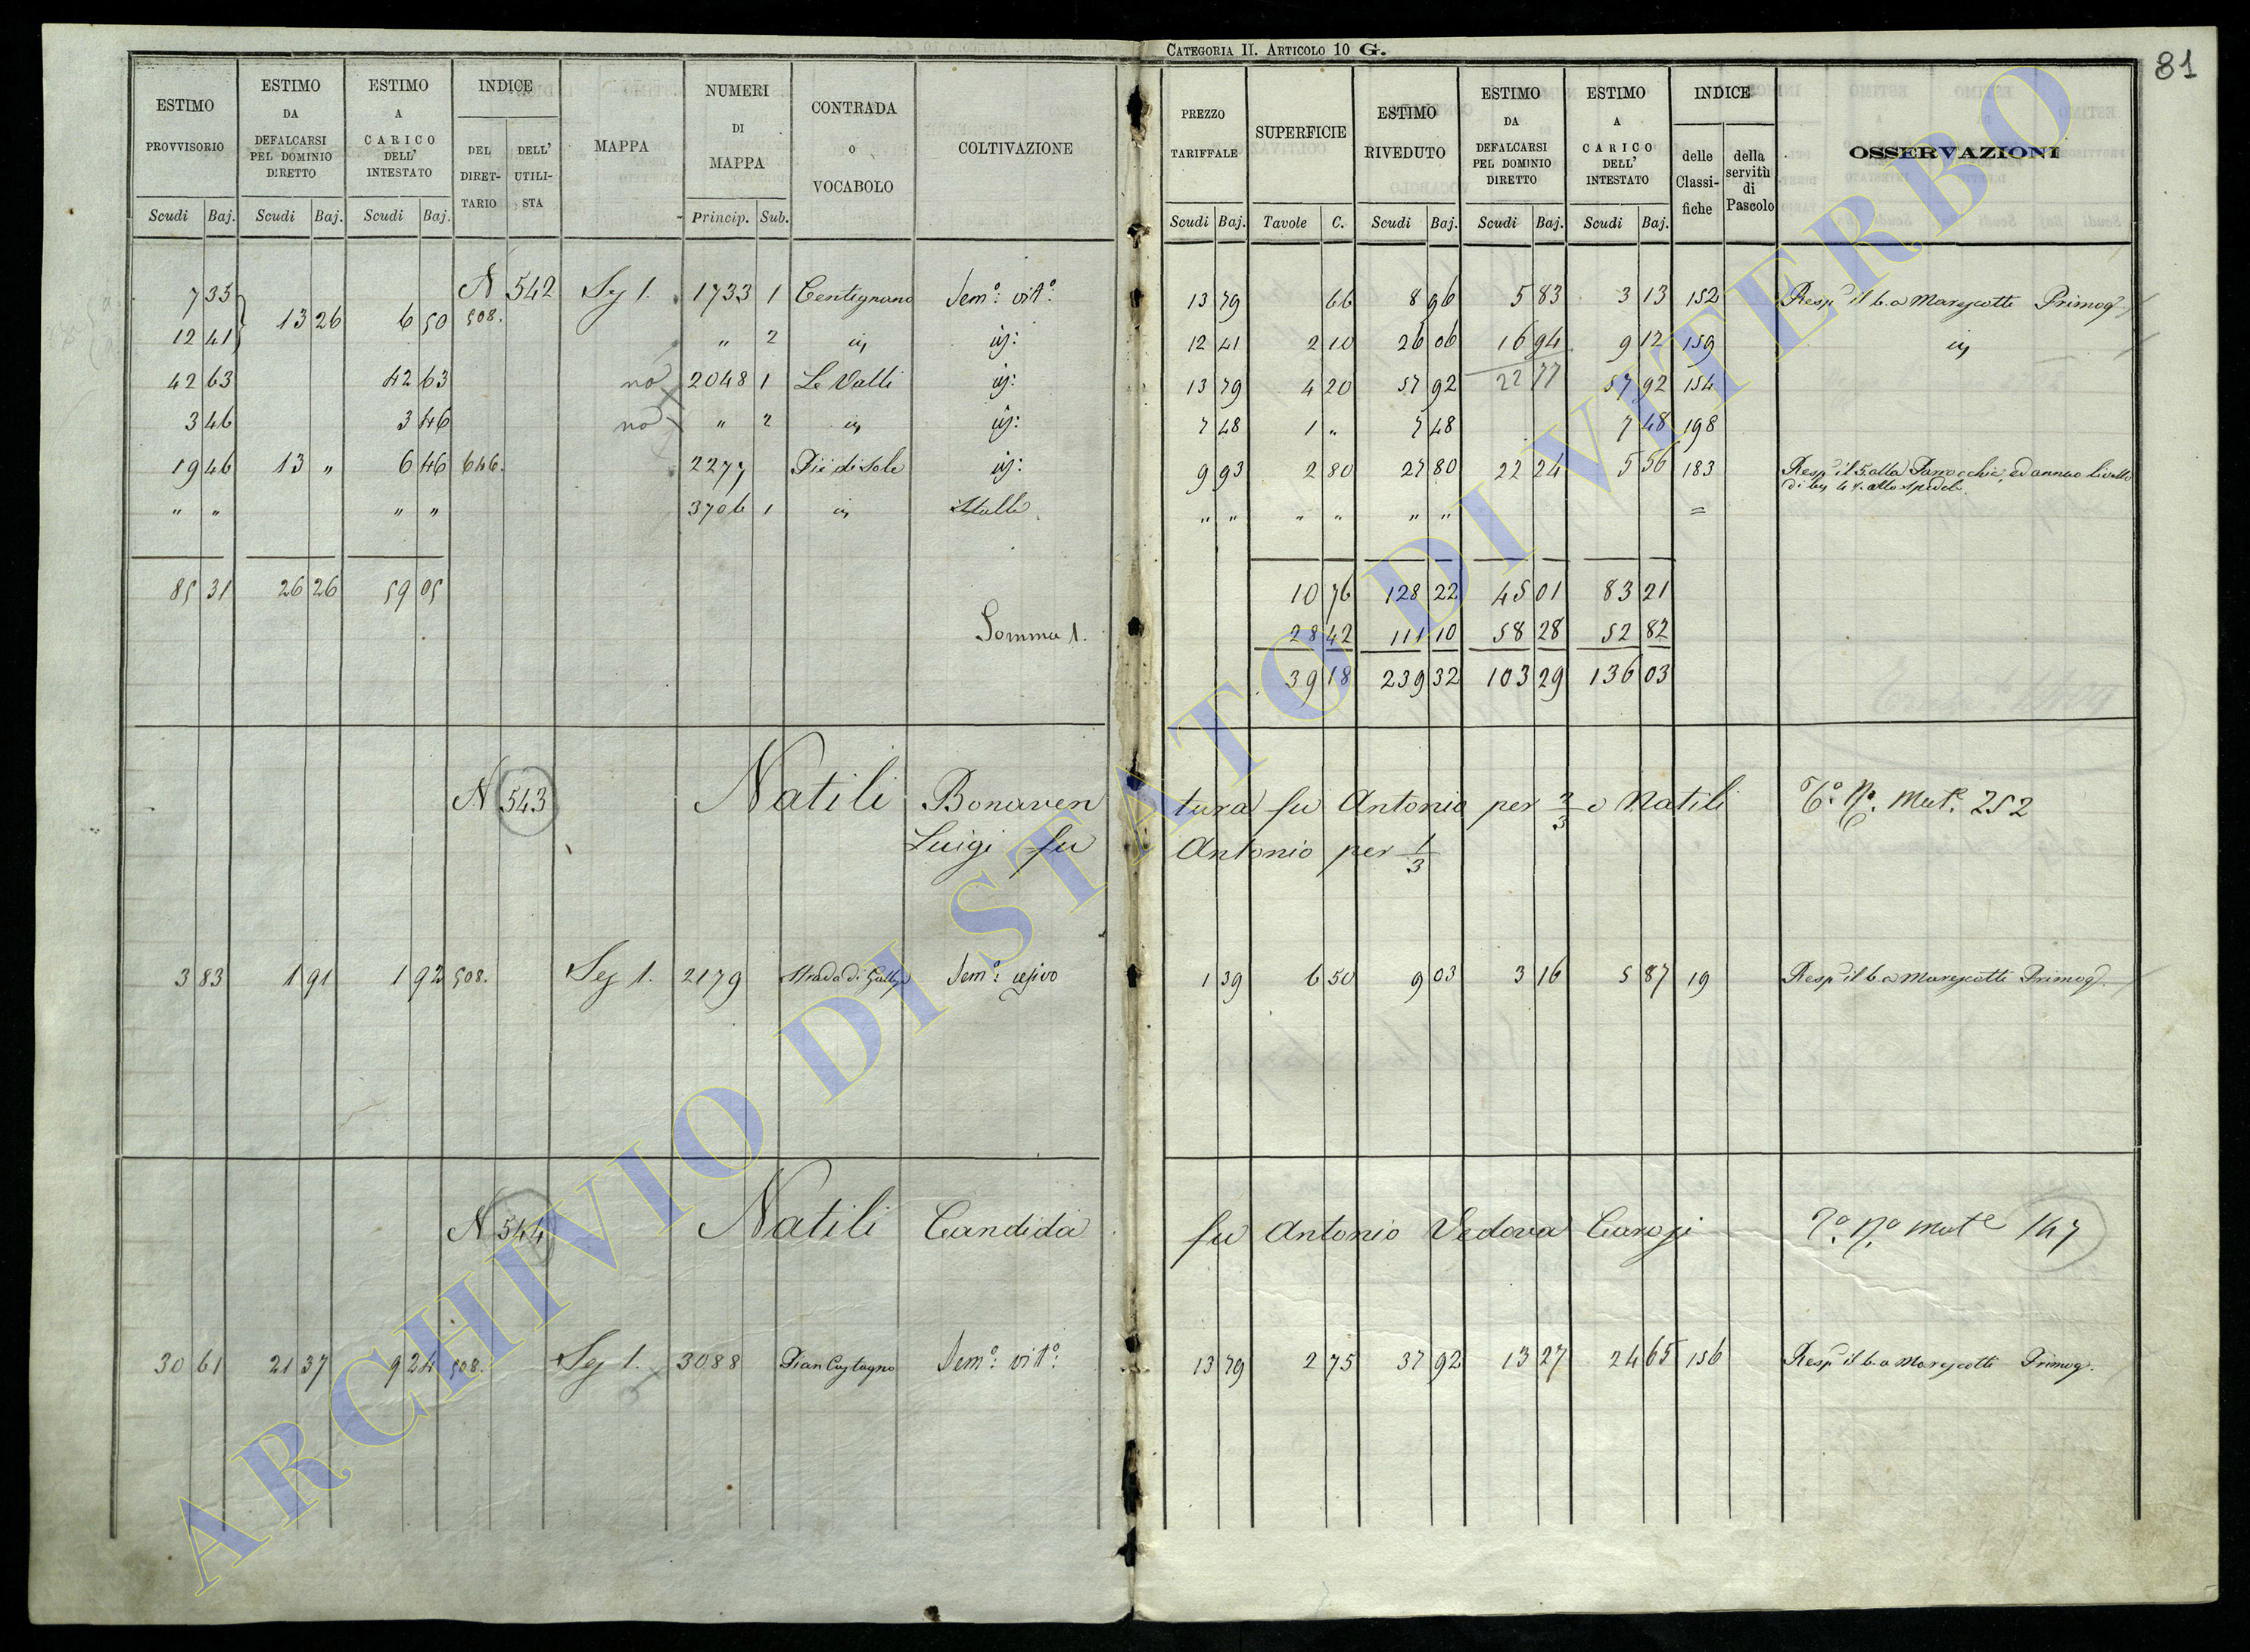 CATEGORIA II. ARTICOLO 10 G.
81
ESTIMO PROVVISORIO Scudi Baj.
ESTIMO DA DEFALCARSI PEL DOMINIO DIRETTO Scudi Baj.
ESTIMO A CARICO DELL' INTESTATO Scudi Baj.
INDICE DEL DIRETTARIO DELL' UTILISTA
MAPPA
NUMERI DI MAPPA Princip. Sub.
CONTRADA O VOCABOLO
COLTIVAZIONE
PREZZO TARIFFALE Scudi Baj.
SUPERFICIE Tavole C.
ESTIMO RIVEDUTO Scudi Baj.
ESTIMO DA DEFALCARSI PEL DOMINIO DIRETTO Scudi Baj.
ESTIMO A CARICO DELL' INTESTATO Scudi Baj.
INDICE delle Classifiche della servitù di Pascolo
OSSERVAZIONI
7 35 13 26 6 50 N 542 508. Seg 1. 1733 1 Centignano Sem.º vit.º 13 79 66 8 96 5 83 3 13 152 Resp il 6.a Marescotti Primog
12 41 " 2 id 12 41 2 10 26 06 16 94 9 12 159
42 63 42 63 no 2048 1 Le Valli 13 79 4 20 57 92 22 77 57 92 154
3 46 3 46 no " 2 7 48 1 " 7 48 7 48 198
19 46 13 " 6 46 646. 2277 Piè di Sole 9 93 2 80 27 80 22 24 5 56 183 Resp il 5.alla Parrocchia, ed annuo livello
" " " " 3706 1 Stalla " " " " " " =
85 31 26 26 59 05 10 76 128 22 45 01 83 21
Somma 1. 28 42 111 10 58 28 52 82
39 18 239 32 103 29 136 03
N 543 Natili Bonaventura fu Antonio per 2/3 e Natili
Mut. 252
Luigi fu Antonio per 1/3
3 83 1 91 1 92 508. Seg 1. 2179 Strada di Sem.º 1 39 6 50 9 03 3 16 5 87 19 Resp il 6.a Marescotti Primog
N 544 Natili Candida fu Antonio Vedova Carosi
Mut.e 147
30 61 21 37 9 24 508. Seg 1. 3088 Pian Castagno Sem.º vit.º 13 79 2 75 37 92 13 27 24 65 156 Resp il 6.a Marescotti Primog.
ARCHIVIO DI STATO DI VITERBO